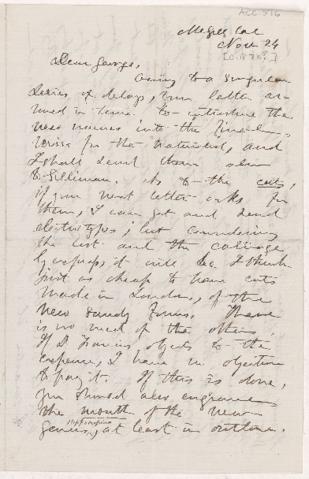 Acc-876
McGill Col
Nov. 24
[c. 1878?]
Dear George,
Owing to a singular
series of delays, your letter ar-
rived in time to introduce the
new names into the final
revise for the Naturalist, and
I shall send them also
to Silliman. As to the cuts,
if your next letter asks for
them, I can get and send
electrotypes; but considering
the cost and the carriage
by express, it will be I think
just as cheap to have cuts
made in London, of the
new Sandy forms. There
is no need of the others.
If Dr Francis objects to the
expense, I have no objection
to pay it. If this is done,
you should also engrave
the mouth of the new
genus, at least in outline.